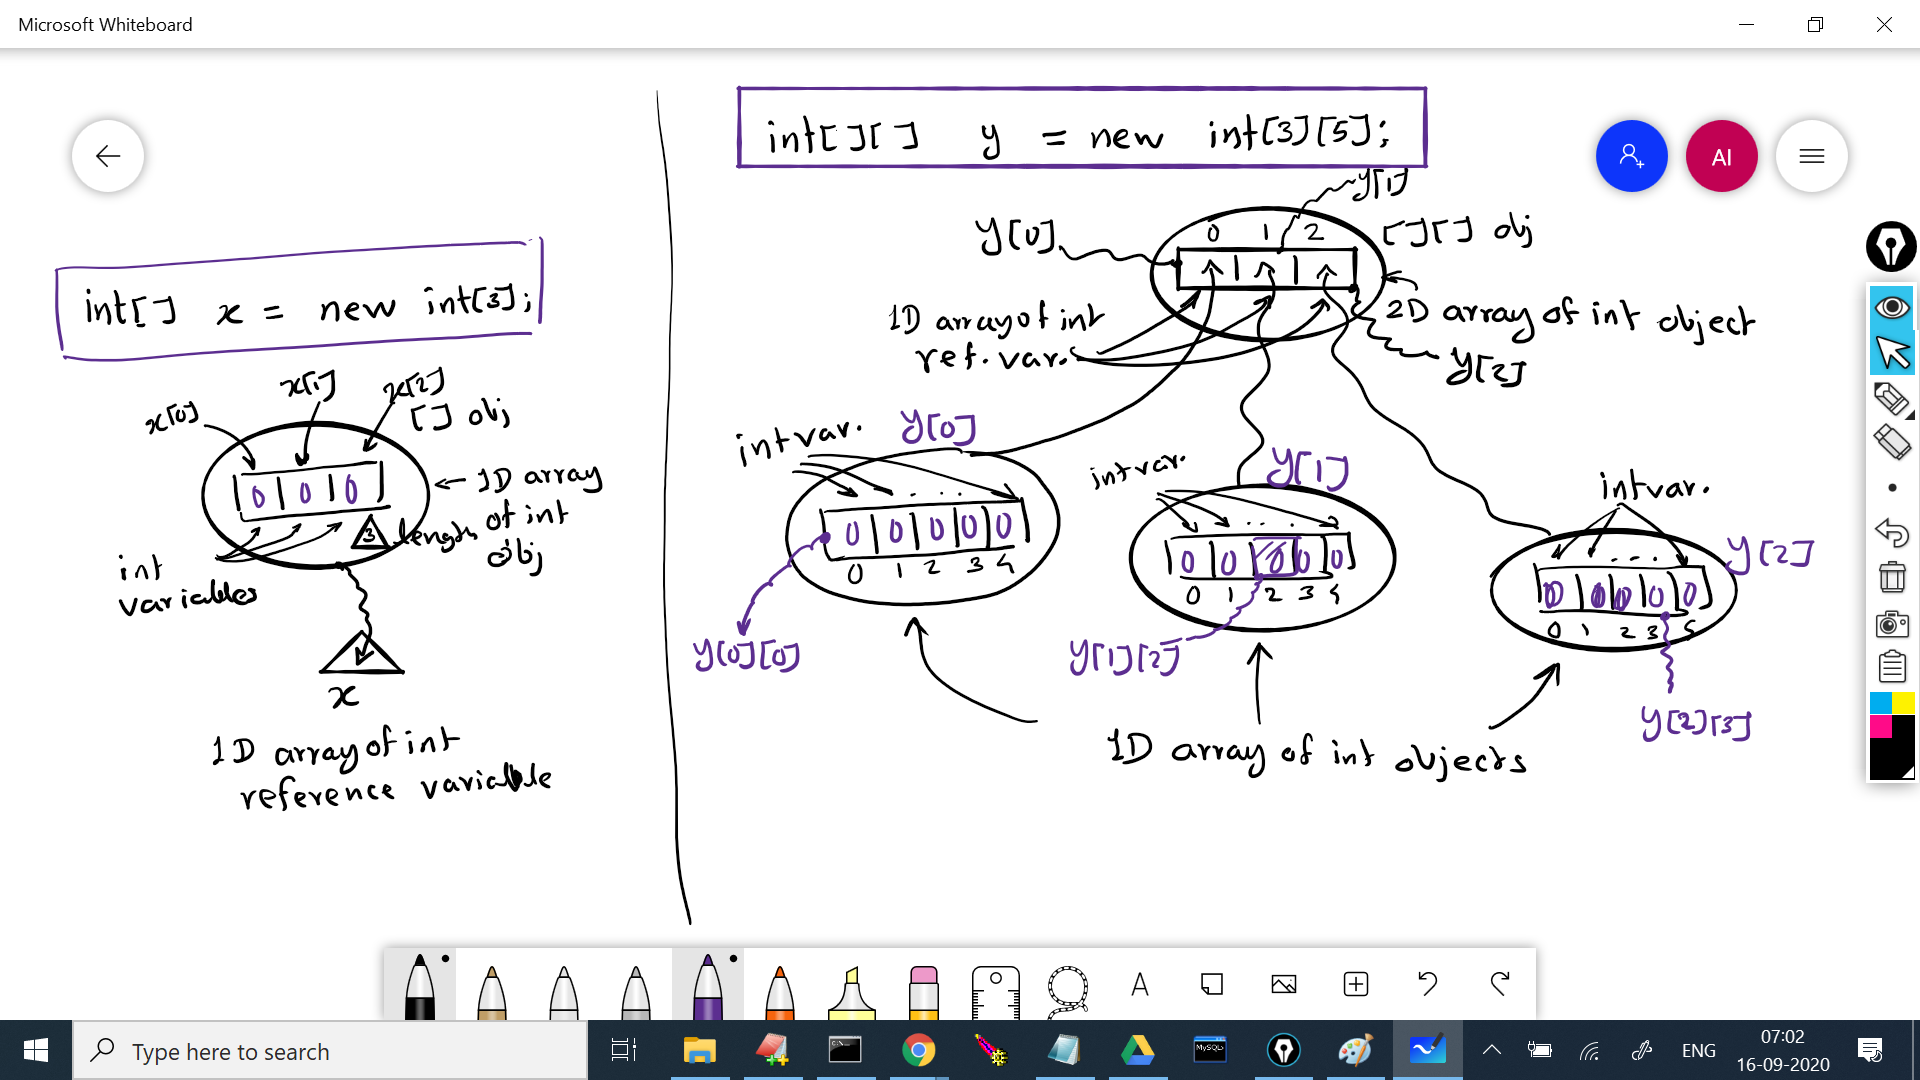 Microsoft Whiteboard
AI
int[] x = new int[3];
x[0]
x[1]
x[2]
[] obj
0 0 0
3
length
1D array
of int
obj
int
variables
x
1D array of int
reference variable
int[][] y = new int[3][5];
y[0]
y[1]
0 1 2
[][] obj
1D array of int
ref. var.
2D array of int object
y[2]
int var.
y[0]
0 0 0 0 0
0 1 2 3 4
y[0][0]
int var.
y[1]
0 0 0 0 0
0 1 2 3 4
y[1][2]
int var.
y[2]
0 0 0 0 0
0 1 2 3
y[2][3]
1D array of int objects
A
Type here to search
C:\
MySQL
ENG
07:02
16-09-2020